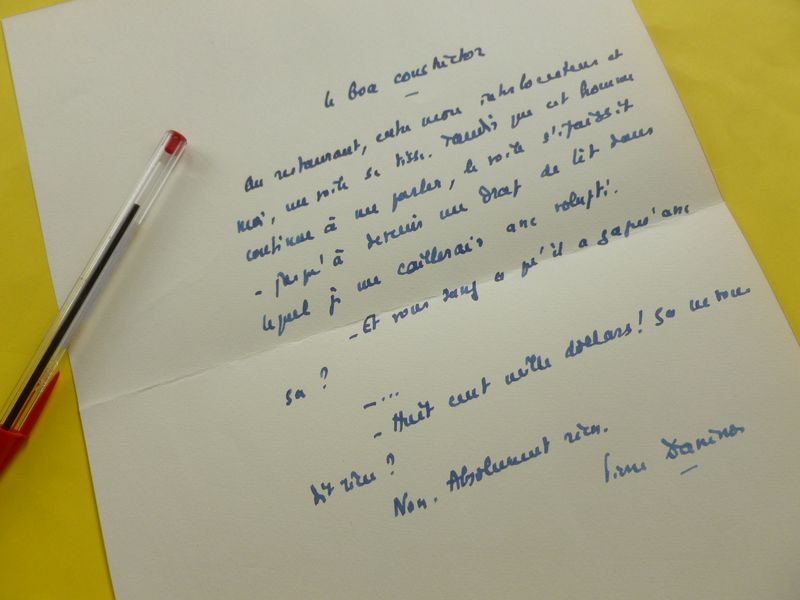 le boa constrictor
Au restaurant, entre mon interlocuteur et
moi, un voile se tisse. Tandis que cet homme
continue à me parler, le voile s'épaissit
- jusqu'à devenir un drap de lit dans
lequel je me coillerais avec volupté.
- Et vous savez ce qu'il a gagné avec
sa ?
- ...
- Huit cent mille dollars ! Sa ne vous
dit rien ?
Non. Absolument rien.
Pierre Daninos